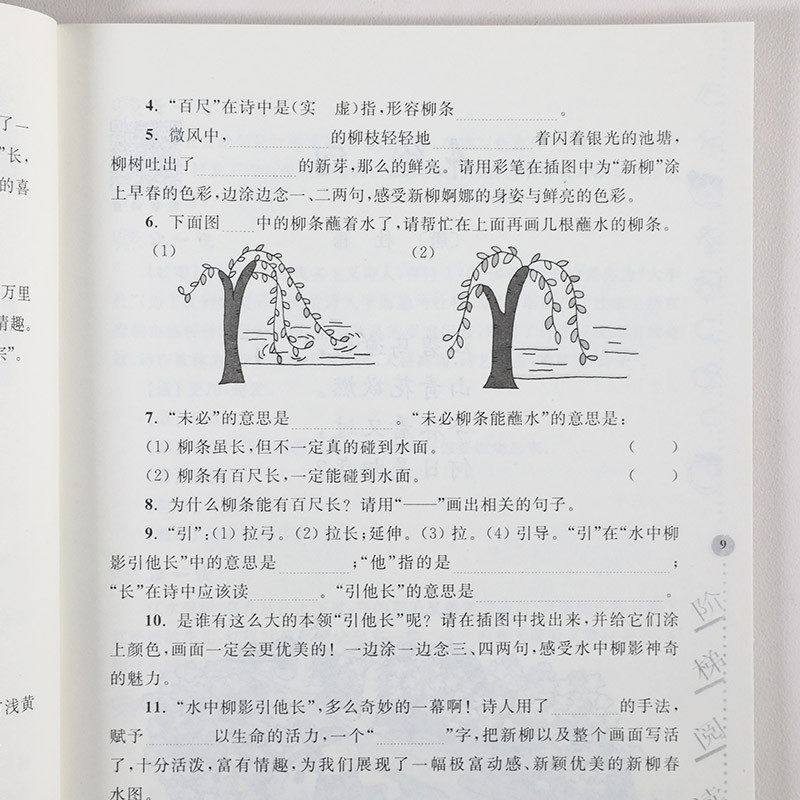 了一
”长，
的喜
万里
情趣。
示”。
浅黄
4. “百尺”在诗中是(实 虚)指，形容柳条 。
5. 微风中， 的柳枝轻轻地 着闪着银光的池塘，
柳树吐出了 的新芽，那么的鲜亮。请用彩笔在插图中为“新柳”涂
上早春的色彩，边涂边念一、二两句，感受新柳婀娜的身姿与鲜亮的色彩。
6. 下面图 中的柳条蘸着水了，请帮忙在上面再画几根蘸水的柳条。
(1) (2)
7. “未必”的意思是 。“未必柳条能蘸水”的意思是：
(1) 柳条虽长，但不一定真的碰到水面。 ( )
(2) 柳条有百尺长，一定能碰到水面。 ( )
8. 为什么柳条能有百尺长？请用“——”画出相关的句子。
9. “引”：(1) 拉弓。(2) 拉长；延伸。(3) 拉。(4) 引导。“引”在“水中柳
影引他长”中的意思是 ；“他”指的是 ；
“长”在诗中应该读 。“引他长”的意思是 。
10. 是谁有这么大的本领“引他长”呢？请在插图中找出来，并给它们涂
上颜色，画面一定会更优美的！一边涂一边念三、四两句，感受水中柳影神奇
的魅力。
11. “水中柳影引他长”，多么奇妙的一幕啊！诗人用了 的手法，
赋予 以生命的活力，一个“ ”字，把新柳以及整个画面写活
了，十分活泼，富有情趣，为我们展现了一幅极富动感、新颖优美的新柳春
水图。
9
阶
梯
阅